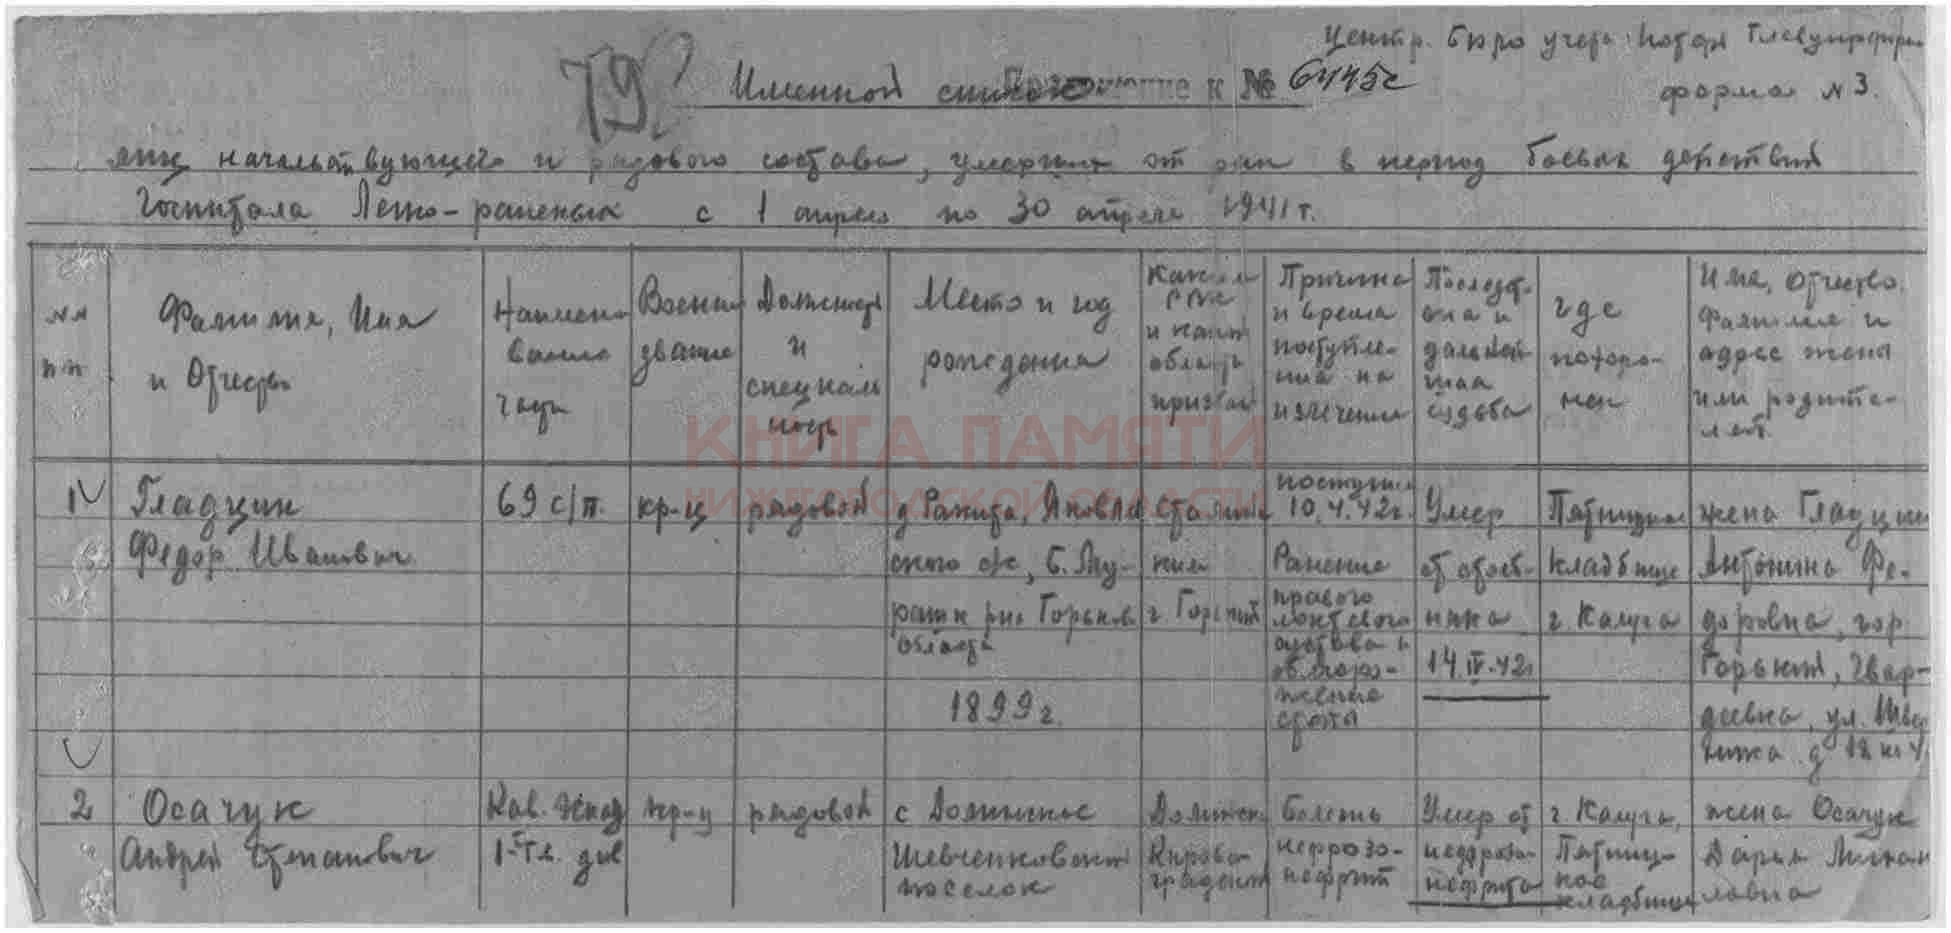 Центр. Бюро учета потерь Главупраформ
форма № 3.
79
Именной список
к № 6445с
лиц начальствующего и рядового состава, умерших от ран в период боевых действий
Госпиталя Легко-раненых с 1 апреля по 30 апреля 1941 г.
№ №
пп
Фамилия, Имя
и Отчество
Наимено
вание
части
Военн
звание
Должность
и
специаль
ность
Место и год
рождения
Каким
РВК
и какой
область
призван
Причина
и время
поступле-
ния на
излечение
Последст-
вия и
дальней-
шая
судьба
где
похоро-
нен
Имя, отчество,
фамилия и
адрес жены
или родите-
лей.
1
Гладцин
Федор Иванович
69 с/п.
кр-ц
рядовой
д Ракита, Яковлев
ского с/с, Б. Му-
рашк рна Горьков
области
1899 г.
Сталинс
ким
г. Горький
поступил
10.4.42г.
Ранение
правого
локтевого
сустава и
обморо-
жение
стопы
Умер
от столб-
няка
14.IV.42г
Пятницкое
кладбище
г. Калуга
жена Гладцин
Антонина Фе-
доровна, гор.
Горький, Гвар-
деевка, ул. Шев
ченко д 18 кв 4
2
Осачук
Андрей Степанович
Кав. эскад
1-гв. див
кр-ц
рядовой
с Долинское
Шевченковский
поселок
Долинск
Кирово-
градский
Болезнь
нефрозо-
нефрит
Умер от
нефрозо-
нефрита
г. Калуга,
Пятниц-
кое
кладбище
жена Осачук
Дарья
ловна
КНИГА ПАМЯТИ
НИЖЕГОРОДСКОЙ ОБЛАСТИ